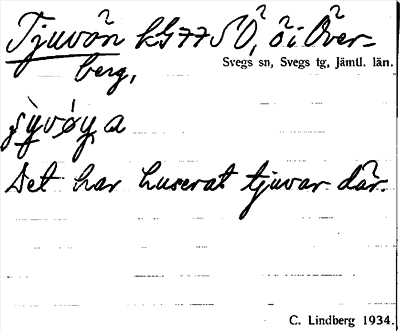 Tjuvön kG77 SÖ, ö i Över-
berg,
Svegs sn, Svegs tg, Jämtl. län.
a
Det har huserat tjuvar där.
C. Lindberg 1934.